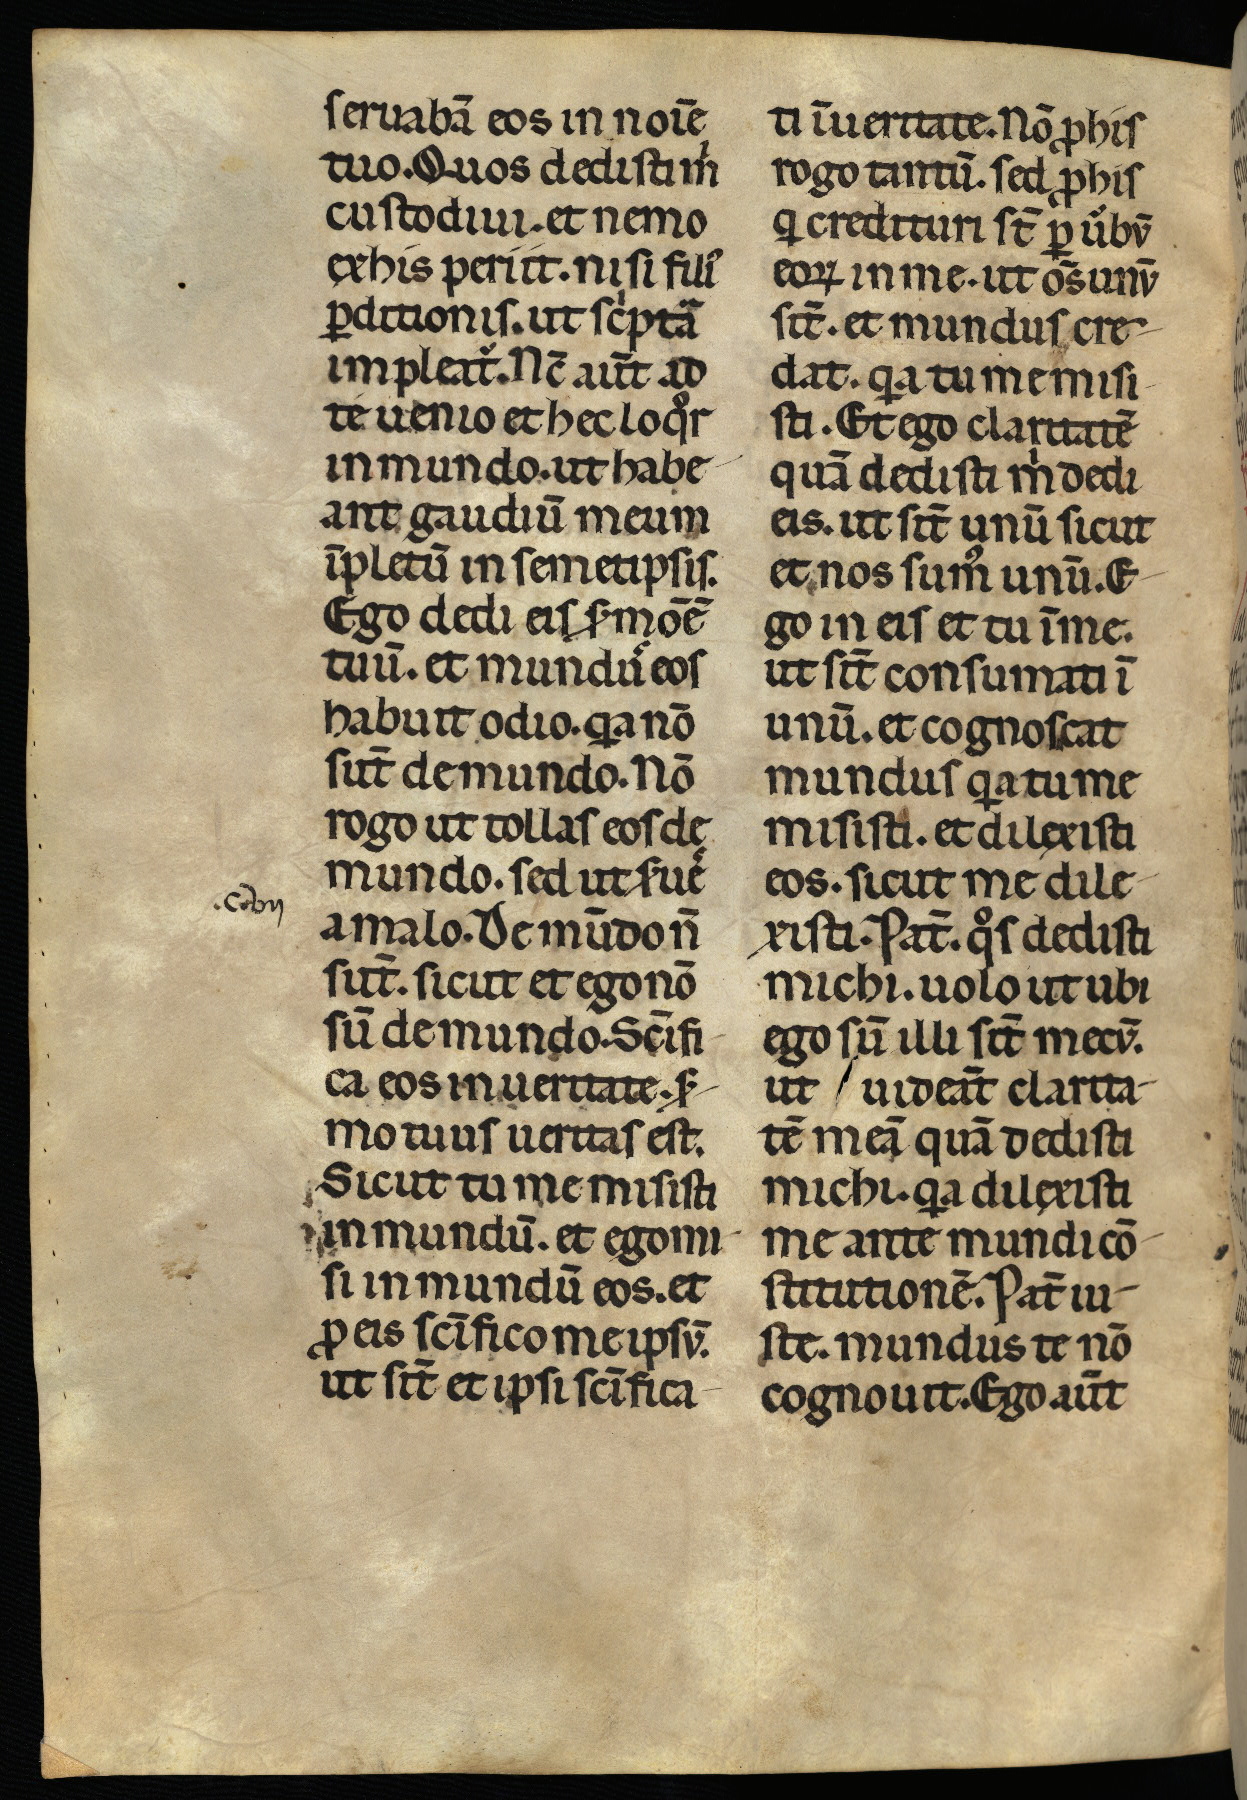 seruabā eos in noīe
tuo. Quos dedisti m̊
custodiui. et nemo
ex his periit. nisi filiꝰ
ꝑditionis. ut sc̍pta᷑
impleat᷑. Nc̄ aūt ad
te uenio et hec loqͦr
in mundo. ut habe-
ant gaudiū meum
īpletū in semetipsis.
Ego dedi eis s̾moēm̄
tuū. et mundꝰ eos
habuit odio. qa nō
sūt de mundo. Nō
rogo ut tollas eos de
mundo. sed ut s̾ues
a malo. De mūdo n̄
sūt. sicut et ego nō
sū de mundo. Sc̄ifi-
ca eos in ueritate. s̾-
mo tuus ueritas est.
Sicut tu me misisti
in mundū. et ego mi-
si in mundū eos. et
ꝓ eis sc̄ifico me ipsū.
ut sīt et ipsi sc̄ifica-
ti ī ueritate. Nō ꝓ his
rogo tantū. sed ꝓ his
q̍ credituri st̄ ꝑ u̾bū
eoꝝ in me. ut oēs unū
sīt. et mundus cre-
dat. qa tu me misi-
sti. Et ego claritatē
quā dedisti m̍ dedi
eis. ut sīt unū sicut
et nos sumꝰ unū. E-
go in eis et tu ī me.
ut sīt consumati ī
unū. et cognoscat
mundus qa tu me
misisti. et dilexisti
eos. sicut me dile-
xisti. Pat̄. qͦs dedisti
michi. uolo ut ubi
ego sū illi sīt mecū.
ut uideāt clarita-
tē meā quā dedisti
michi. qa dilexisti
me ante mundi cō-
stitutionē. Pat̄ iu-
ste. mundus te nō
cognouit. Ego aūt